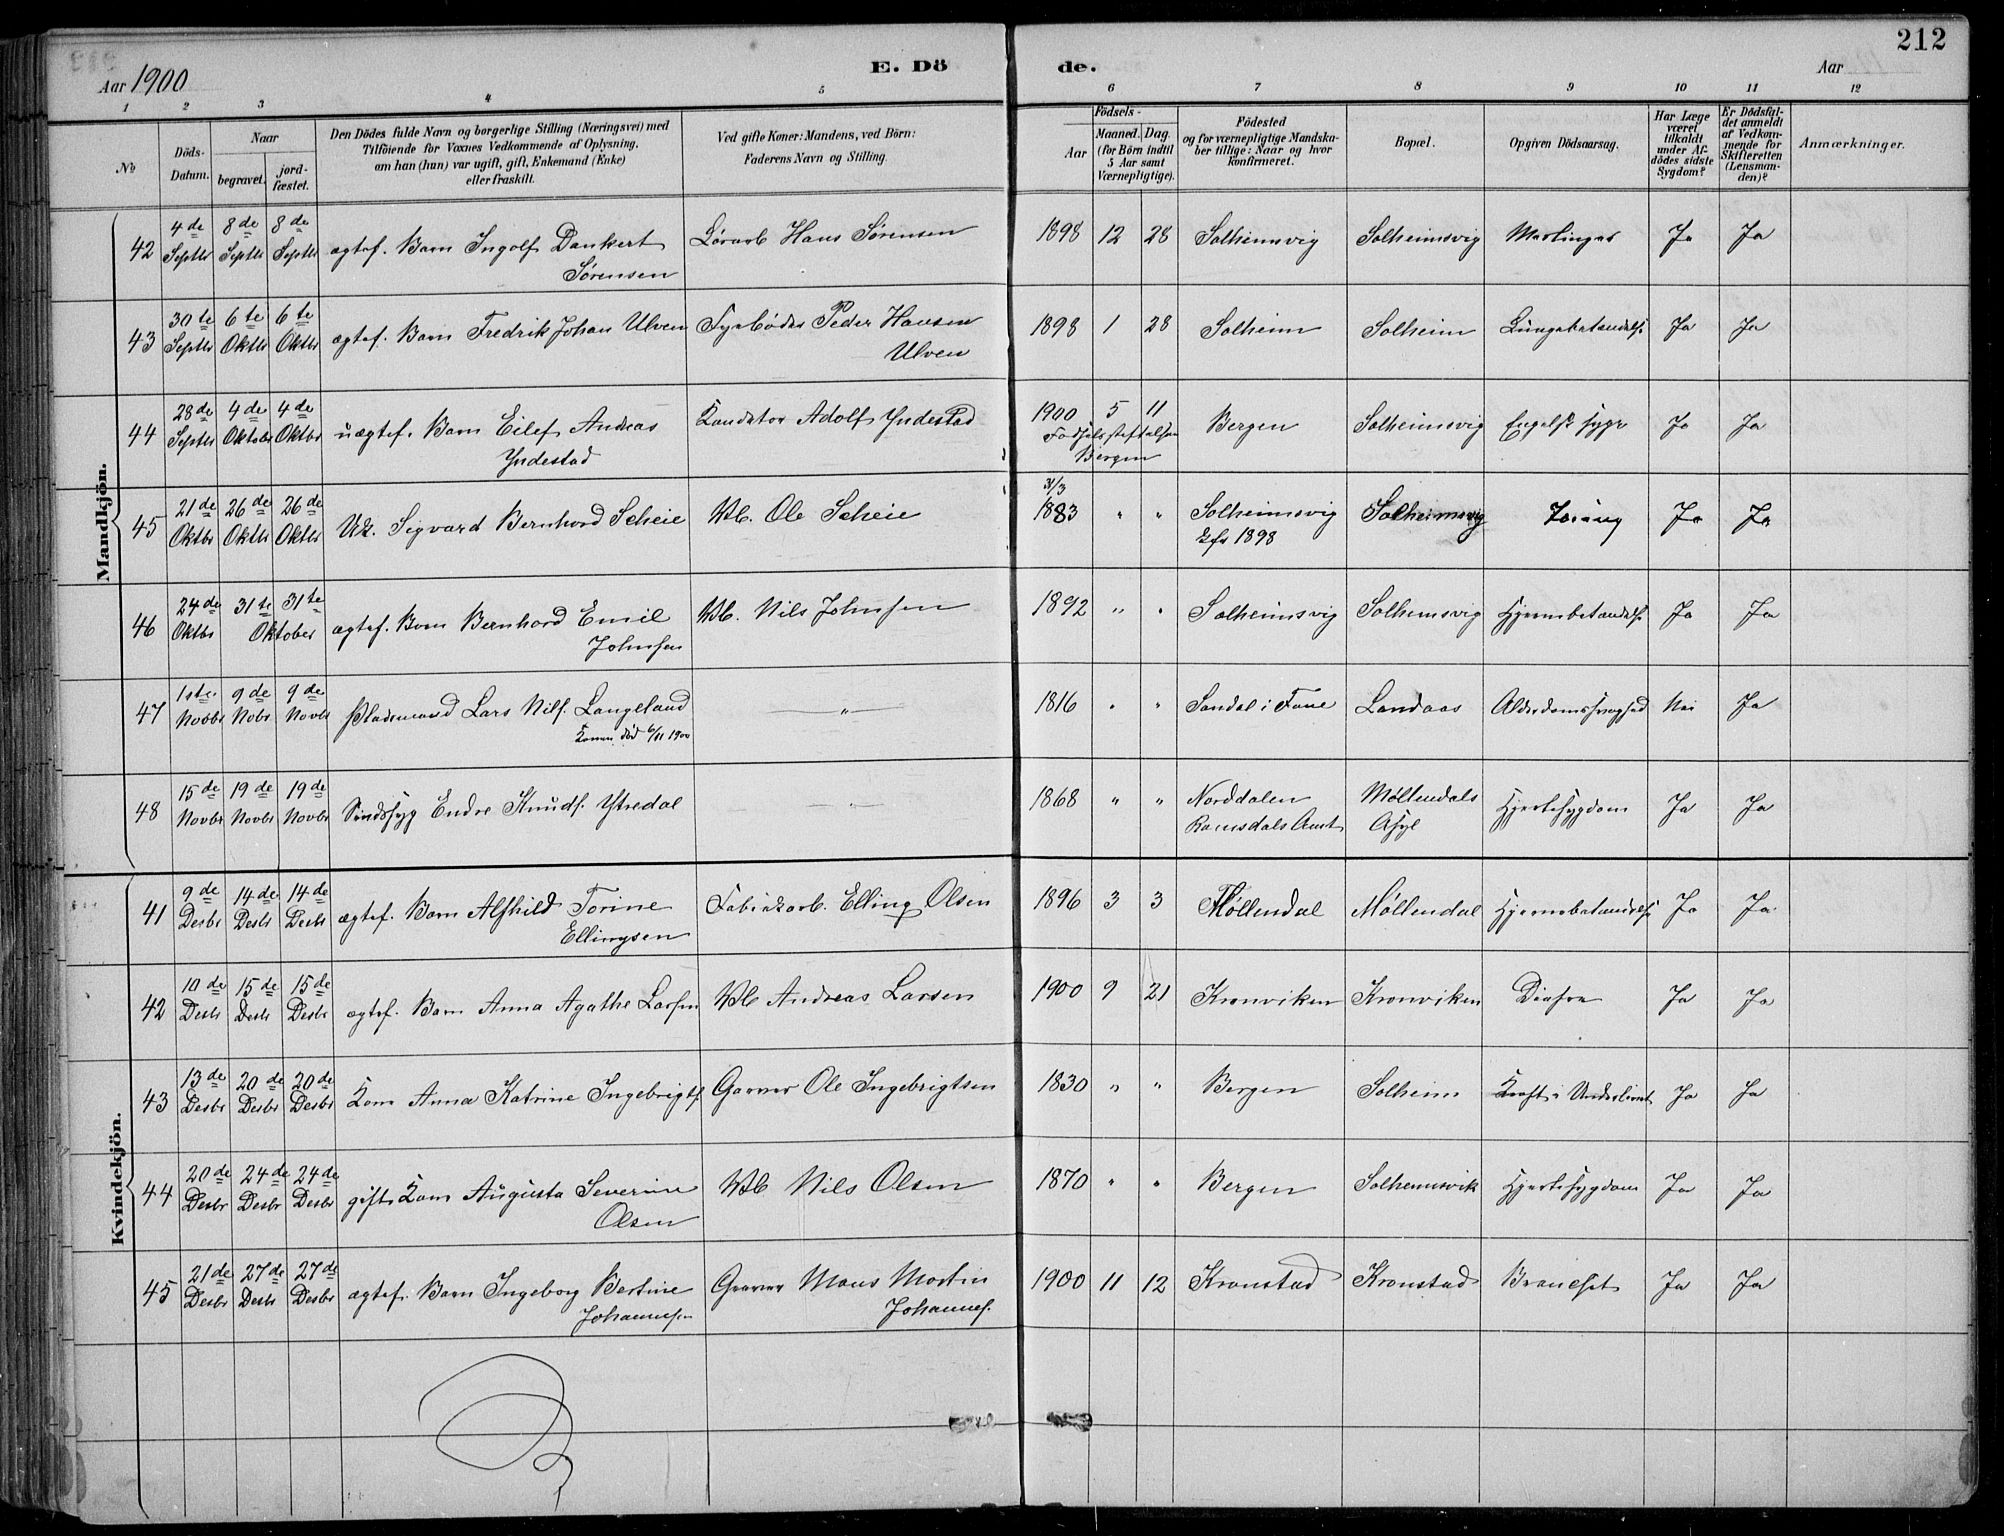 212
Aar 1900
E. Dö de.
Aar
1 2 3 4 5 6 7 8 9 10 11 12
No
Döds-Datum.
Naar
begravet. jordfæstet.
Den Dödes fulde Navn og borgerlige Stilling (Næringsvei) med
Tilföiende for Voxnes Vedkommende af Oplysning.
om han (hun) var ugift, gift, Enkemand (Enke)
eller fraskilt.
Ved gifte Koner: Mandens, ved Börn:
Faderens Navn og Stilling.
Födsels-
Aar
Maaned. Dag.
(for Börn indtil
5 Aar samt
Værnepligtige).
Födested
og for værnepligtige Mandska-
ber tillige: Naar og hvor
konfirmeret.
Bopæl.
Opgiven Dödsaarsag.
Har Læge
været
tilkaldt
under Af-
dödes sidste
Sygdom?
Er Dödsfal-
det anmeldt
af Vedkom-
mende for
Skifteretten
(Lensman-
den)?
Anmærkninger.
Mandkjön.
42 4de Septbr 8de Septbr 8de Septbr ægtef. Barn Ingolf Dankert Sørensen Hans Sørensen 1898 12 28 Solheimsvig Solheimsvig Meslinger Ja Ja
43 30te Septbr 6te Oktbr 6te Oktbr ægtef. Barn Fredrik Johan Ulven Fyrbøder Peder Hansen Ulven 1898 1 28 Solheim Solheim Lungebetændelse Ja Ja
44 28de Septbr 4de Oktober 4de Oktbr uægtef. Barn Eilef Andreas Yndestad Adolf Yndestad 1900 5 11 Fødselsstiftelsen Bergen Bergen Solheimsvig Engelsk Syge Ja Ja
45 21de Oktbr 26de Oktbr 26de Oktbr Sigvard Bernhard Scheie Ole Scheie 31/3 1883 " " Solheimsvig 1898 Solheimsvig Ja Ja
46 24de Oktbr 31te 31te Oktober ægtef. Barn Bernhard Emil Johnsen Nils Johnsen 1892 " " Solheimsvig Solheimsvig Hjernebetændelse Ja Ja
47 1ste Novbr 9de Nobr 9de Novbr Pladsmand Lars Nils. Langeland Konen død 6/11 1900 " 1816 " " Sandal i Fane Landaas Alderdomssvaghed Nei Ja
48 15de Novbr 19de Novbr 19de Novbr Sindssyg Endre Knuds. Ytredal " 1868 " " Norddalen Romsdals Amt Møllendals Asyl Hjertesygdom Ja Ja
Kvindekjön.
41 9de Desbr 14de Desb 14de Desb ægtef. Barn Alfhild Torine Ellingsen Fabrikarb. Elling Olsen 1896 3 3 Møllendal Møllendal Hjernebetændelse Ja Ja
42 10de Desb 15de Desb 15de Desbr ægtef. Barn Anna Agathe Larsen Andreas Larsen 1900 9 21 Kronviken Kronviken Ja Ja
43 13de Desbr 20de Desbr 20de Desbr Kone Anna Katrine Ingebrigts. Garver Ole Ingebrigtsen 1830 " " Bergen Solheim Kræft i Underlivet Ja Ja
44 20de Desbr 24de Desbr 24de Desbr gift Kone Augusta Severine Olsen Nils Olsen 1870 " " Bergen Solheimsvik Hjertesygdom Ja Ja
45 21de Desbr 27de Desb 27de Desbr ægtef. Barn Ingeborg Bertine Johannesen Garver Mons Martin Johannes. 1900 11 12 Kronstad Kronstad Ja Ja